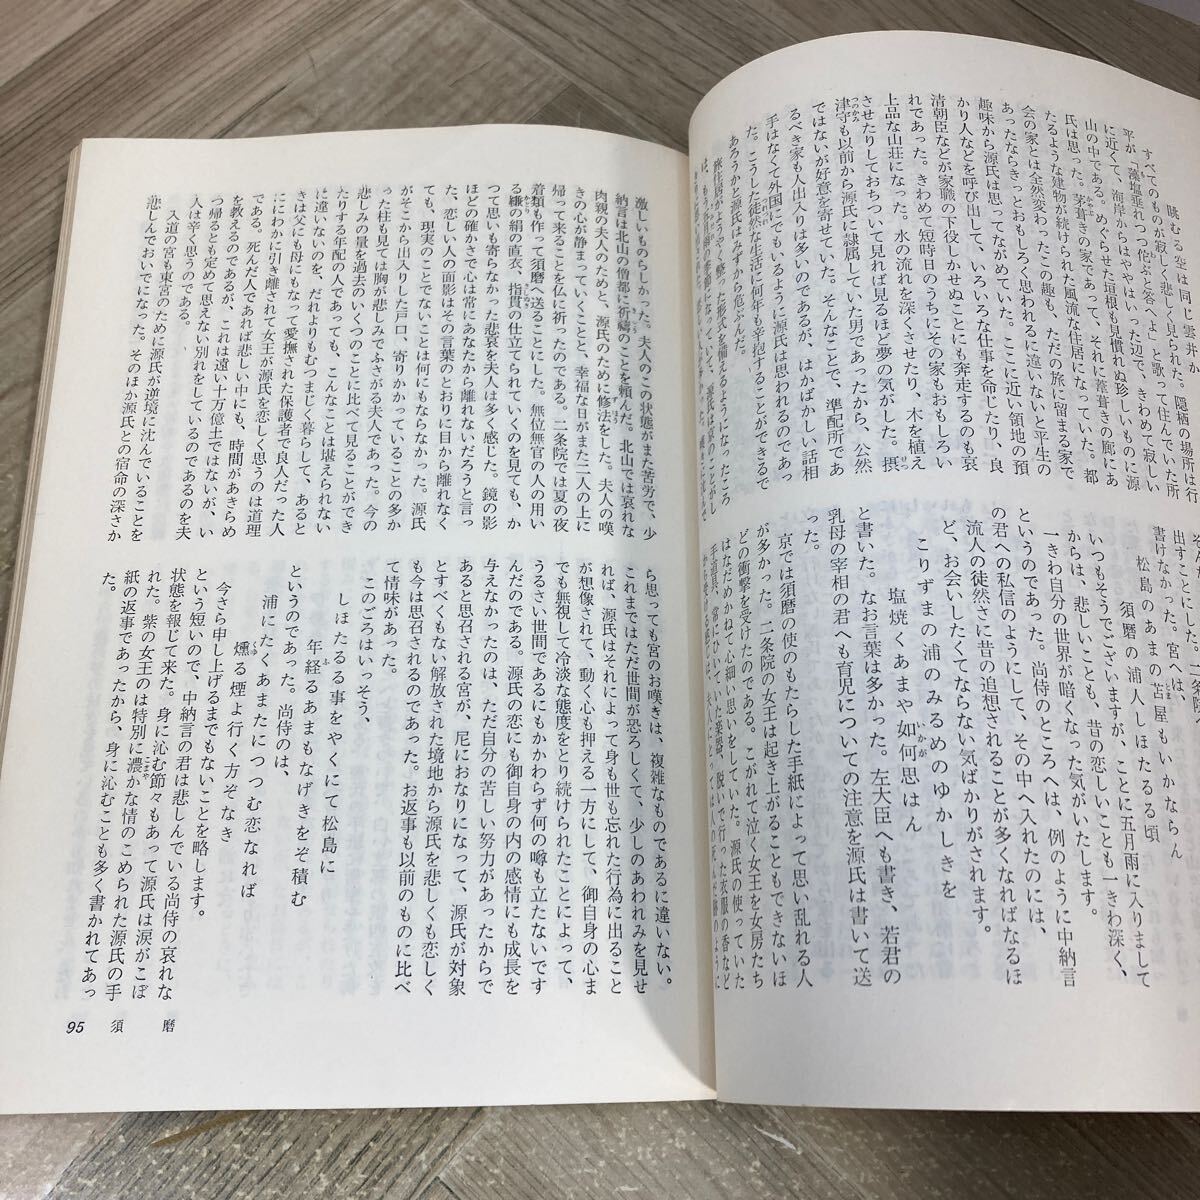 眺むる空は同じ雲井か
すべてのものが寂しく悲しく見えた。隠栖の場所は行
平が「藻塩垂れつつ侘ぶと答へよ」と歌って住んでいた所
に近くて、海岸からはややはいった辺で、きわめて寂しい
山の中である。めぐらせた垣根も見慣れぬ珍しいものに源
氏は思った。茅葺きの家であって、それに葦葺きの廊にあ
たるような建物が続けられた風流な住居になっていた。都
会の家とは全然変わったこの趣も、ただの旅に留まる家で
あったならきっとおもしろく思われるに違いないと平生の
趣味から源氏は思ってながめていた。ここに近い領地の預
かり人などを呼び出して、いろいろな仕事を命じたり、良
清朝臣などが家職の下役しかせぬことにも奔走するのも哀
れであった。きわめて短時日のうちにその家もおもしろい
上品な山荘になった。水の流れを深くさせたり、木を植え
させたりしておちついて見れば見るほど夢の気がした。摂
津守も以前から源氏に隷属していた男であったから、公然
ではないが好意を寄せていた。そんなことで、準配所であ
るべき家も人出入りは多いのであるが、はかばかしい話相
手はなくて外国にでもいるように源氏は思われるのであっ
た。こうした徒然な生活に何年も辛抱することができるで
あろうかと源氏はみずから危ぶんだ。
旅住居がようやく整った形式を備えるようになったころ
は、もう五月雨の季節になっていて、源氏は京のことがし
出すことにした。宮へは、
書けなかった。
松島のあまの苫屋もいかならん
須磨の浦人しほたるる頃
いつもそうでございますが、ことに五月雨に入りまして
からは、悲しいことも、昔の恋しいことも一きわ深く、
一きわ自分の世界が暗くなった気がいたします。
というのであった。尚侍のところへは、例のように中納言
の君への私信のようにして、その中へ入れたのには、
流人の徒然さに昔の追想されることが多くなればなるほ
ど、お会いしたくてならない気ばかりがされます。
こりずまの浦のみるめのゆかしきを
塩焼くあまや如何思はん
と書いた。なお言葉は多かった。左大臣へも書き、若君の
乳母の宰相の君へも育児についての注意を源氏は書いて送
った。
京では須磨の使のもたらした手紙によって思い乱れる人
が多かった。二条院の女王は起き上がることもできないほ
どの衝撃を受けたのである。こがれて泣く女王を女房たち
はなだめかねて心細い思いをしていた。源氏の使っていた
手道具、常にひいていた楽器、脱いで行った衣服の香など
激しいものらしかった。夫人のこの状態がまた苦労で、少
納言は北山の僧都に祈祷のことを頼んだ。北山では哀れな
肉親の夫人のためと、源氏のために修法をした。夫人の嘆
きの心が静まっていくことと、幸福な日がまた二人の上に
帰って来ることを仏に祈ったのである。二条院では夏の夜
着類も作って須磨へ送ることにした。無位無官の人の用い
る縑の絹の直衣、指貫の仕立てられていくのを見ても、か
つて思いも寄らなかった悲哀を夫人は多く感じた。鏡の影
ほどの確かさで心は常にあなたから離れないだろうと言っ
た、恋しい人の面影はその言葉のとおりに目から離れなく
ても、現実のことでないことは何にもならなかった。源氏
がそこから出入りした戸口、寄りかかっていることの多か
った柱も見ては胸が悲しみでふさがる夫人であった。今の
悲しみの量を過去のいくつのことに比べて見ることができ
たりする年配の人であっても、こんなことは堪えられない
に違いないのを、だれよりもむつまじく暮らして、あると
きは父にも母にもなって愛撫された保護者で良人だった人
ににわかに引き離されて女王が源氏を恋しく思うのは道理
である。死んだ人であれば悲しい中にも、時間があきらめ
を教えるのであるが、これは遠い十万億土ではないが、い
つ帰るとも定めて思えない別れをしているのであるのを夫
人は辛く思うのである。
入道の宮も東宮のために源氏が逆境に沈んでいることを
悲しんでおいでになった。そのほか源氏との宿命の深さか
ら思っても宮のお嘆きは、複雑なものであるに違いない。
これまではただ世間が恐ろしくて、少しのあわれみを見せ
れば、源氏はそれによって身も世も忘れた行為に出ること
が想像されて、動く心も押える一方にして、御自身の心ま
でも無視して冷淡な態度をとり続けられたことによって、
うるさい世間であるにもかかわらず何の噂も立たないです
んだのである。源氏の恋にも御自身の内の感情にも成長を
与えなかったのは、ただ自分の苦しい努力があったからで
あると思召される宮が、尼におなりになって、源氏が対象
とすべくもない解放された境地から源氏を悲しくも恋しく
も今は思召されるのであった。お返事も以前のものに比べ
て情味があった。
このごろはいっそう、
しほたるる事をやくにて松島に
年経るあまもなげきをぞ積む
というのであった。尚侍のは、
浦にたくあまたにつつむ恋なれば
燻る煙よ行く方ぞなき
今さら申し上げるまでもないことを略します。
という短いので、中納言の君は悲しんでいる尚侍の哀れな
状態を報じて来た。身に沁む節々もあって源氏は涙がこぼ
れた。紫の女王のは特別に濃かな情のこめられた源氏の手
紙の返事であったから、身に沁むことも多く書かれてあっ
た。
95 須磨